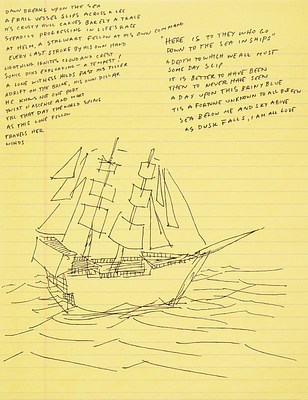 DAWN BREAKS UPON THE SEA
A FRAIL VESSEL SLIPS ACROSS A LEE
ITS CRUSTY HULL CARVES BARELY A TRACE
STEADILY PROGRESSING IN LIFE'S RACE
AT HELM, A STALWART FELLOW AT HIS OWN COMMAND
EVERY LAST STROKE BY HIS OWN HAND
LIGHTNING IGNITES CLOUD AND CREST!
SONIC DINS EXPLODING — A TEMPEST!
A LONE WITNESS HOLDS FAST HIS TILLER
ADRIFT ON THE BRINE, HIS OWN PILLAR
HE KNOWS NO ONE PORT
TWIXT AND
TILL THAT DAY THE WIND
AS THIS LONE FELLOW
TRAVELS HER
WINDS
"HERE IS TO THEY WHO GO
DOWN TO THE SEA IN SHIPS"
A DEPTH TO WHICH WE ALL MUST
SOME DAY SLIP
IT IS BETTER TO HAVE BEEN
THEN TO NEVER HAVE SEEN
A DAY UPON THIS BRINY BLUE
'TIS A FORTUNE UNKNOWN TO ALL BUT FEW
SEA BELOW ME AND SKY ABOVE
AS DUSK FALLS, I AM ALL LOVE